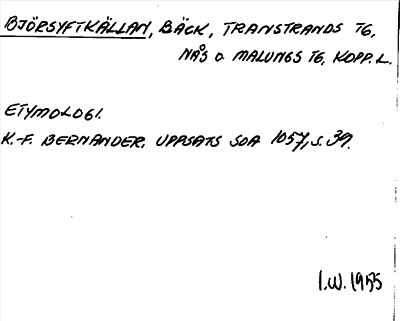 BJÖRSYFTKÄLLAN, BÄCK, TRANSTRANDS TG,
NÅS O. MALUNGS TG, KOPP. L.
ETYMOLOGI.
K.-F. BERNANDER, UPPSATS SOA 1057, S. 39.
I.W. 1955